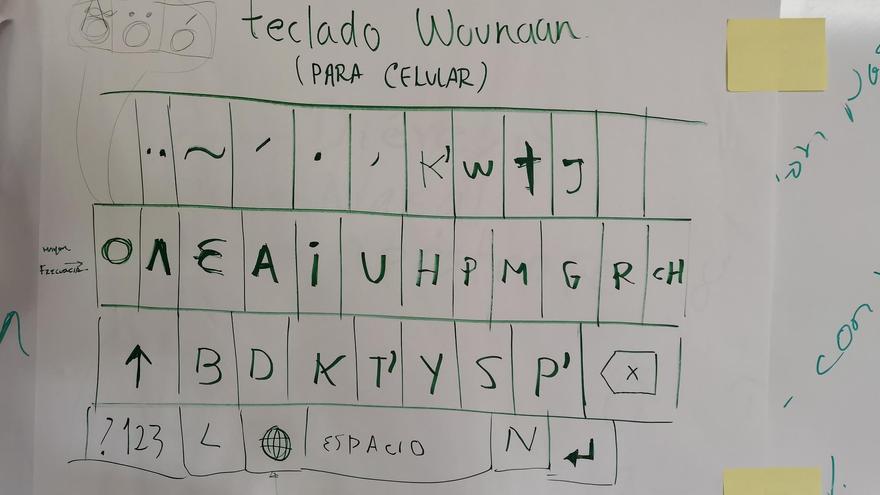 teclado Wounaan
(PARA CELULAR)
¨ ~ ´ · ʼ K' W t J
mayor
Frecuencia → O Ʌ Ɛ A i U H P M G R CH
↑ B D K T' Y S P' X
?123 < ESPACIO N ↵
con